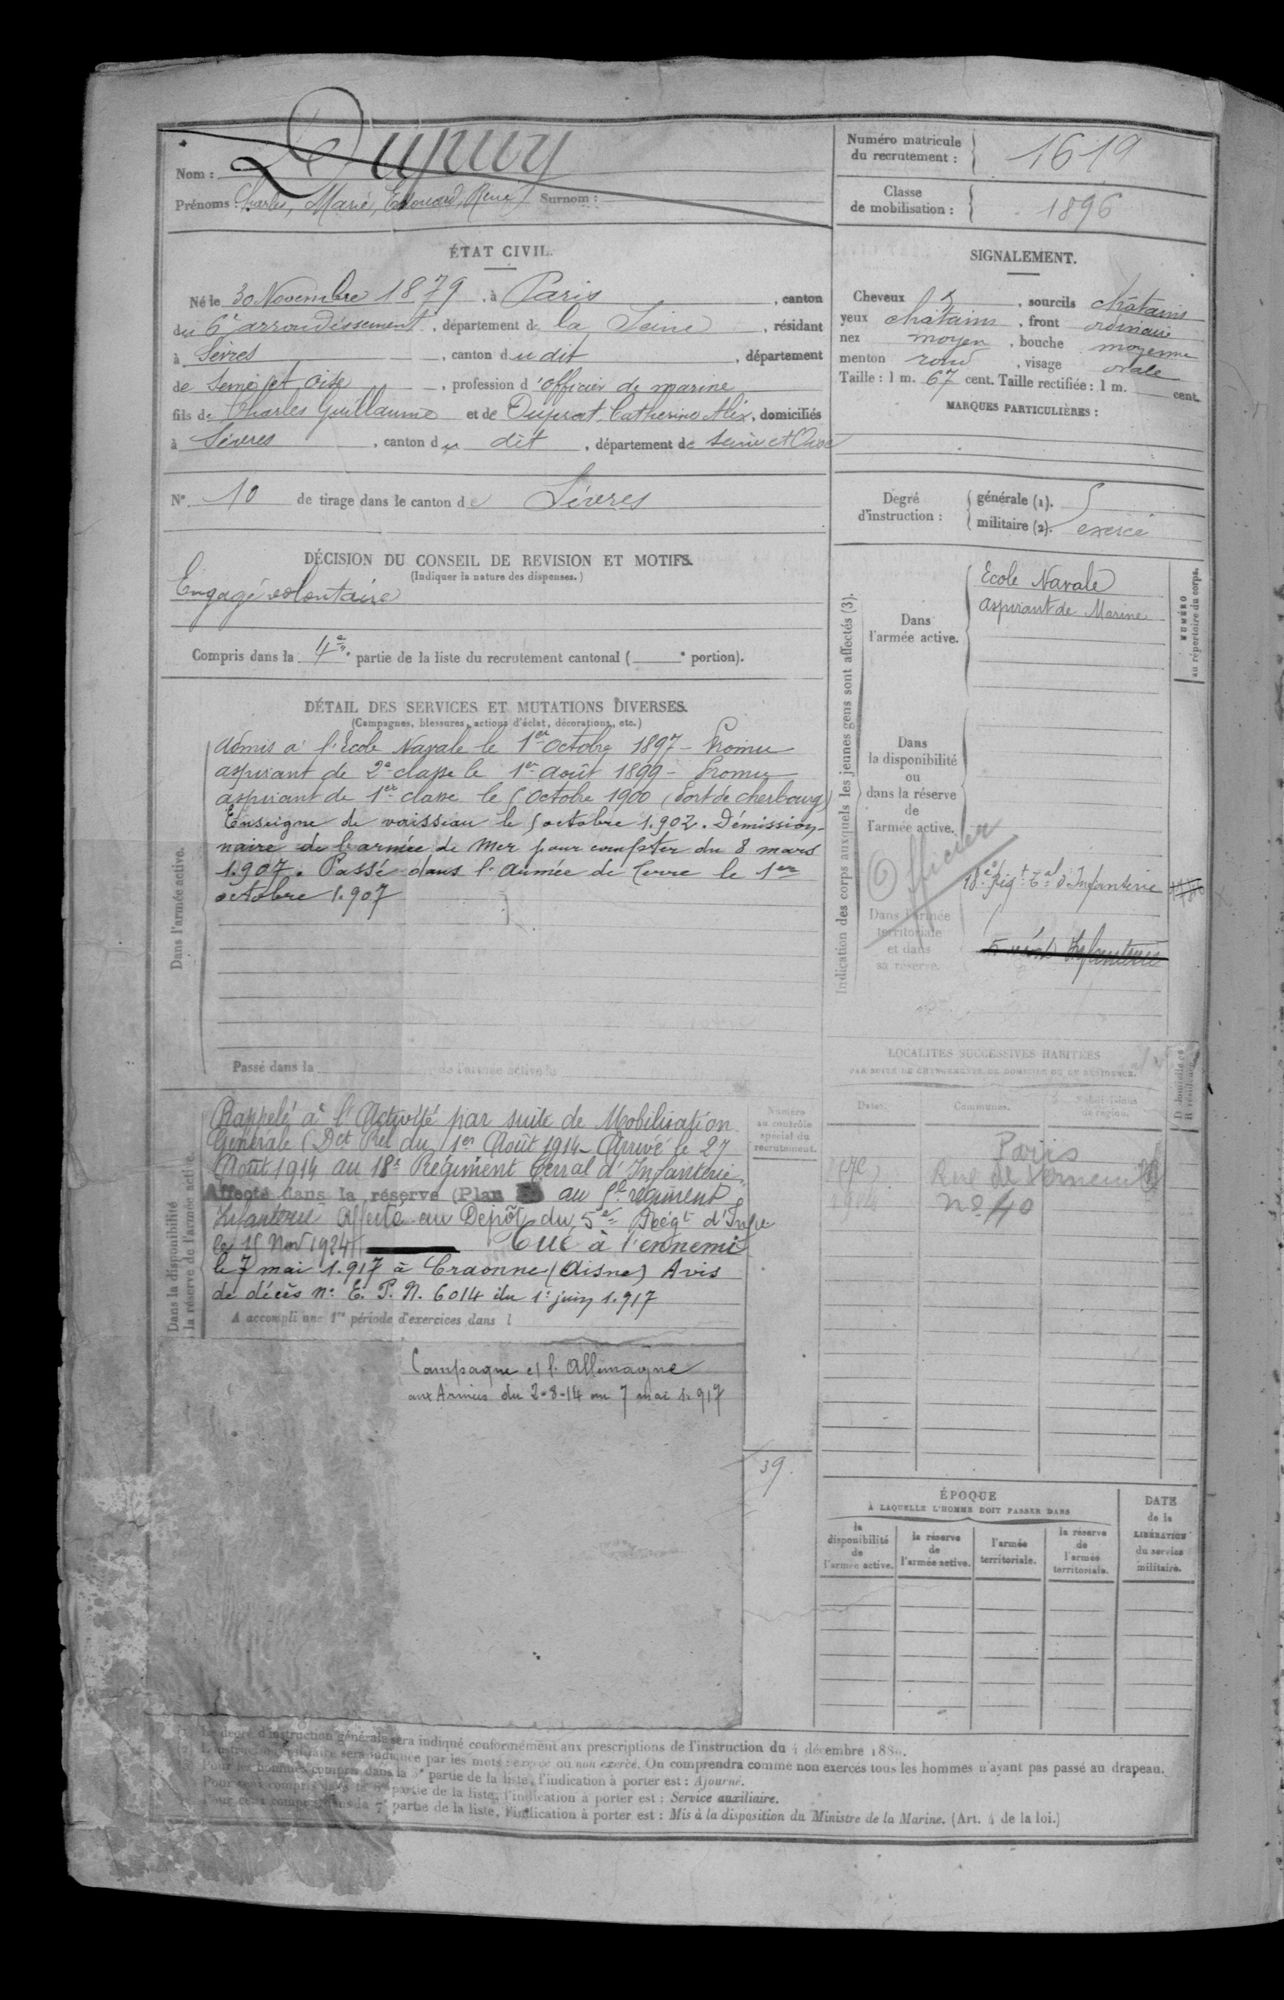 Nom : Dupuy
Prénoms : Charles, Marie, Edouard, René Surnom :
Numéro matricule du recrutement : 1619
Classe de mobilisation : 1896
ÉTAT CIVIL.
Né le 30 Novembre 1879, à Paris, canton
du 6e arrondissement, département de la Seine, résidant
à Sèvres, canton du dit, département
de Seine et Oise, profession d'officier de marine
fils de Charles Guillaume et de Duprat Catherine Alix, domiciliés
à Sèvres, canton du dit, département de Seine et Oise
N° 10 de tirage dans le canton de Sèvres
SIGNALEMENT.
Cheveux x, sourcils châtains
yeux châtains, front ordinaire
nez moyen, bouche moyenne
menton rond, visage ovale
Taille : 1 m. 67 cent. Taille rectifiée : 1 m. cent.
MARQUES PARTICULIÈRES :
Degré d'instruction : générale (1).
militaire (2). exercé
DÉCISION DU CONSEIL DE REVISION ET MOTIFS.
(Indiquer la nature des dispenses.)
Engagé volontaire
Compris dans la 4e partie de la liste du recrutement cantonal ( e portion).
DÉTAIL DES SERVICES ET MUTATIONS DIVERSES.
(Campagnes, blessures, actions d'éclat, décorations, etc.)
Dans l'armée active.
Admis à l'École Navale le 1er octobre 1897 - Promu
aspirant de 2e classe le 1er août 1899 - Promu
aspirant de 1er classe le 5 Octobre 1900 (Port de Cherbourg)
Enseigne de vaisseau le 5 octobre 1.902. Démission-
naire de l'armée de Mer pour compter du 8 mars
1.907. Passé dans l'Armée de Terre le 1er
octobre 1.907
Passé dans la de l'armée active le
Dans la disponibilité
la réserve de l'armée active.
Rappelé à l'Activité par suite de Mobilisation
Générale (Dct Pel du 1er Août 1914 - Arrivé le 27
Août 1914 au 18e Régiment Terral d'Infanterie.
Affecté dans la réserve (Plan au 5e régiment
Infanterie Affecté au Dépôt du 5e Régt d'Infie
le 15 Nov 1924 Tué à l'ennemi
le 7 mai 1.917 à Craonne (Aisne) Avis
de décès n° E. P. N. 6014 du 1er juin 1.917
A accompli une 1re période d'exercices dans l
Campagne c/ l'Allemagne
aux Armées du 2-8-14 au 7 mai 1.917
Numéro au contrôle spécial du recrutement.
39.
Indication des corps auxquels les jeunes gens sont affectés (3).
NUMÉRO
au répertoire du corps.
Dans l'armée active.
Ecole Navale
aspirant de Marine
Dans la disponibilité ou dans la réserve de l'armée active.
Officier
Dans l'armée territoriale et dans sa réserve.
18e Rigt Tal d'Infanterie
Infanterie
LOCALITÉS SUCCESSIVES HABITÉES
PAR SUITE DE CHANGEMENTS DE DOMICILE OU DE RÉSIDENCE.
Dates. Communes. Subdivisions de région. D domicile ou R résidence.
Paris
Rue de Verneuil
1914 N° 40
ÉPOQUE
À LAQUELLE L'HOMME DOIT PASSER DANS
la disponibilité de l'armée active.
la réserve de l'armée active.
l'armée territoriale.
la réserve de l'armée territoriale.
DATE de la LIBÉRATION du service militaire.
Le degré d'instruction générale sera indiqué conformément aux prescriptions de l'instruction du 4 décembre 188 .
L'instruction militaire sera indiquée par les mots : exercé ou non exercé. On comprendra comme non exercés tous les hommes n'ayant pas passé au drapeau.
Pour les hommes compris dans la 5e partie de la liste, l'indication à porter est : Ajourné.
Pour ceux compris dans la 6e partie de la liste, l'indication à porter est : Service auxiliaire.
Pour ceux compris dans la 7e partie de la liste, l'indication à porter est : Mis à la disposition du Ministre de la Marine. (Art. 4 de la loi.)